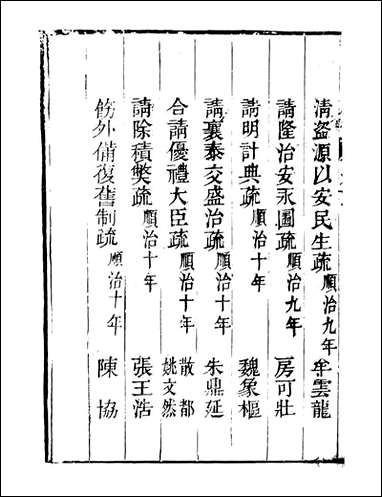 清盗源以安民生疏 順治九年 牟雲龍
請隆治安永圖疏 順治九年 房可壯
請明計典疏 順治十年 魏象樞
請襄泰交盛治疏 順治十年 朱鼎延
合請優禮大臣疏 順治十年 散都 姚文然
請除積獘疏 順治十年 張王浩
飭外備復舊制疏 順治十年 陳協